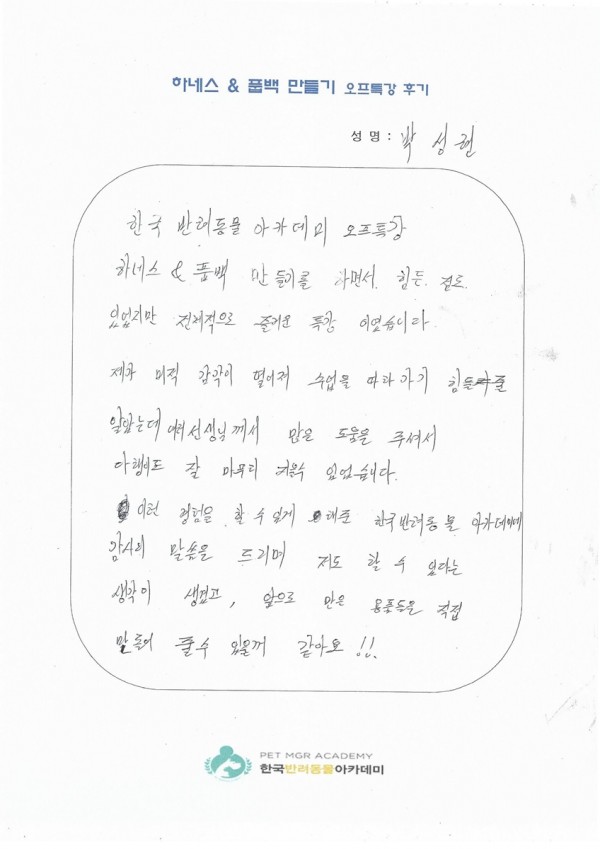 하네스 & 풉백 만들기 오프특강 후기
성 명 : 박 성현
한국 반려동물 아카데미 오프특강
하네스 & 풉백 만들기를 하면서. 힘든 점도
있었지만 전체적으로 즐거운 특강 이였습니다.
제가 미적 감각이 떨어져 수업을 따라가기 힘들줄
알았는데 선생님께서 많은 도움을 주셔서
잘 마무리 있었습니다.
이런 경험을 할 수 있게 해준 한국반려동물 아카데미에
감사의 말씀을 드리며 저도 할 수 있다는
생각이 생겼고, 앞으로 만은 용품들을 직접
만들어 줄수 있을꺼 같아요 !!.
PET MGR ACADEMY
한국반려동물아카데미